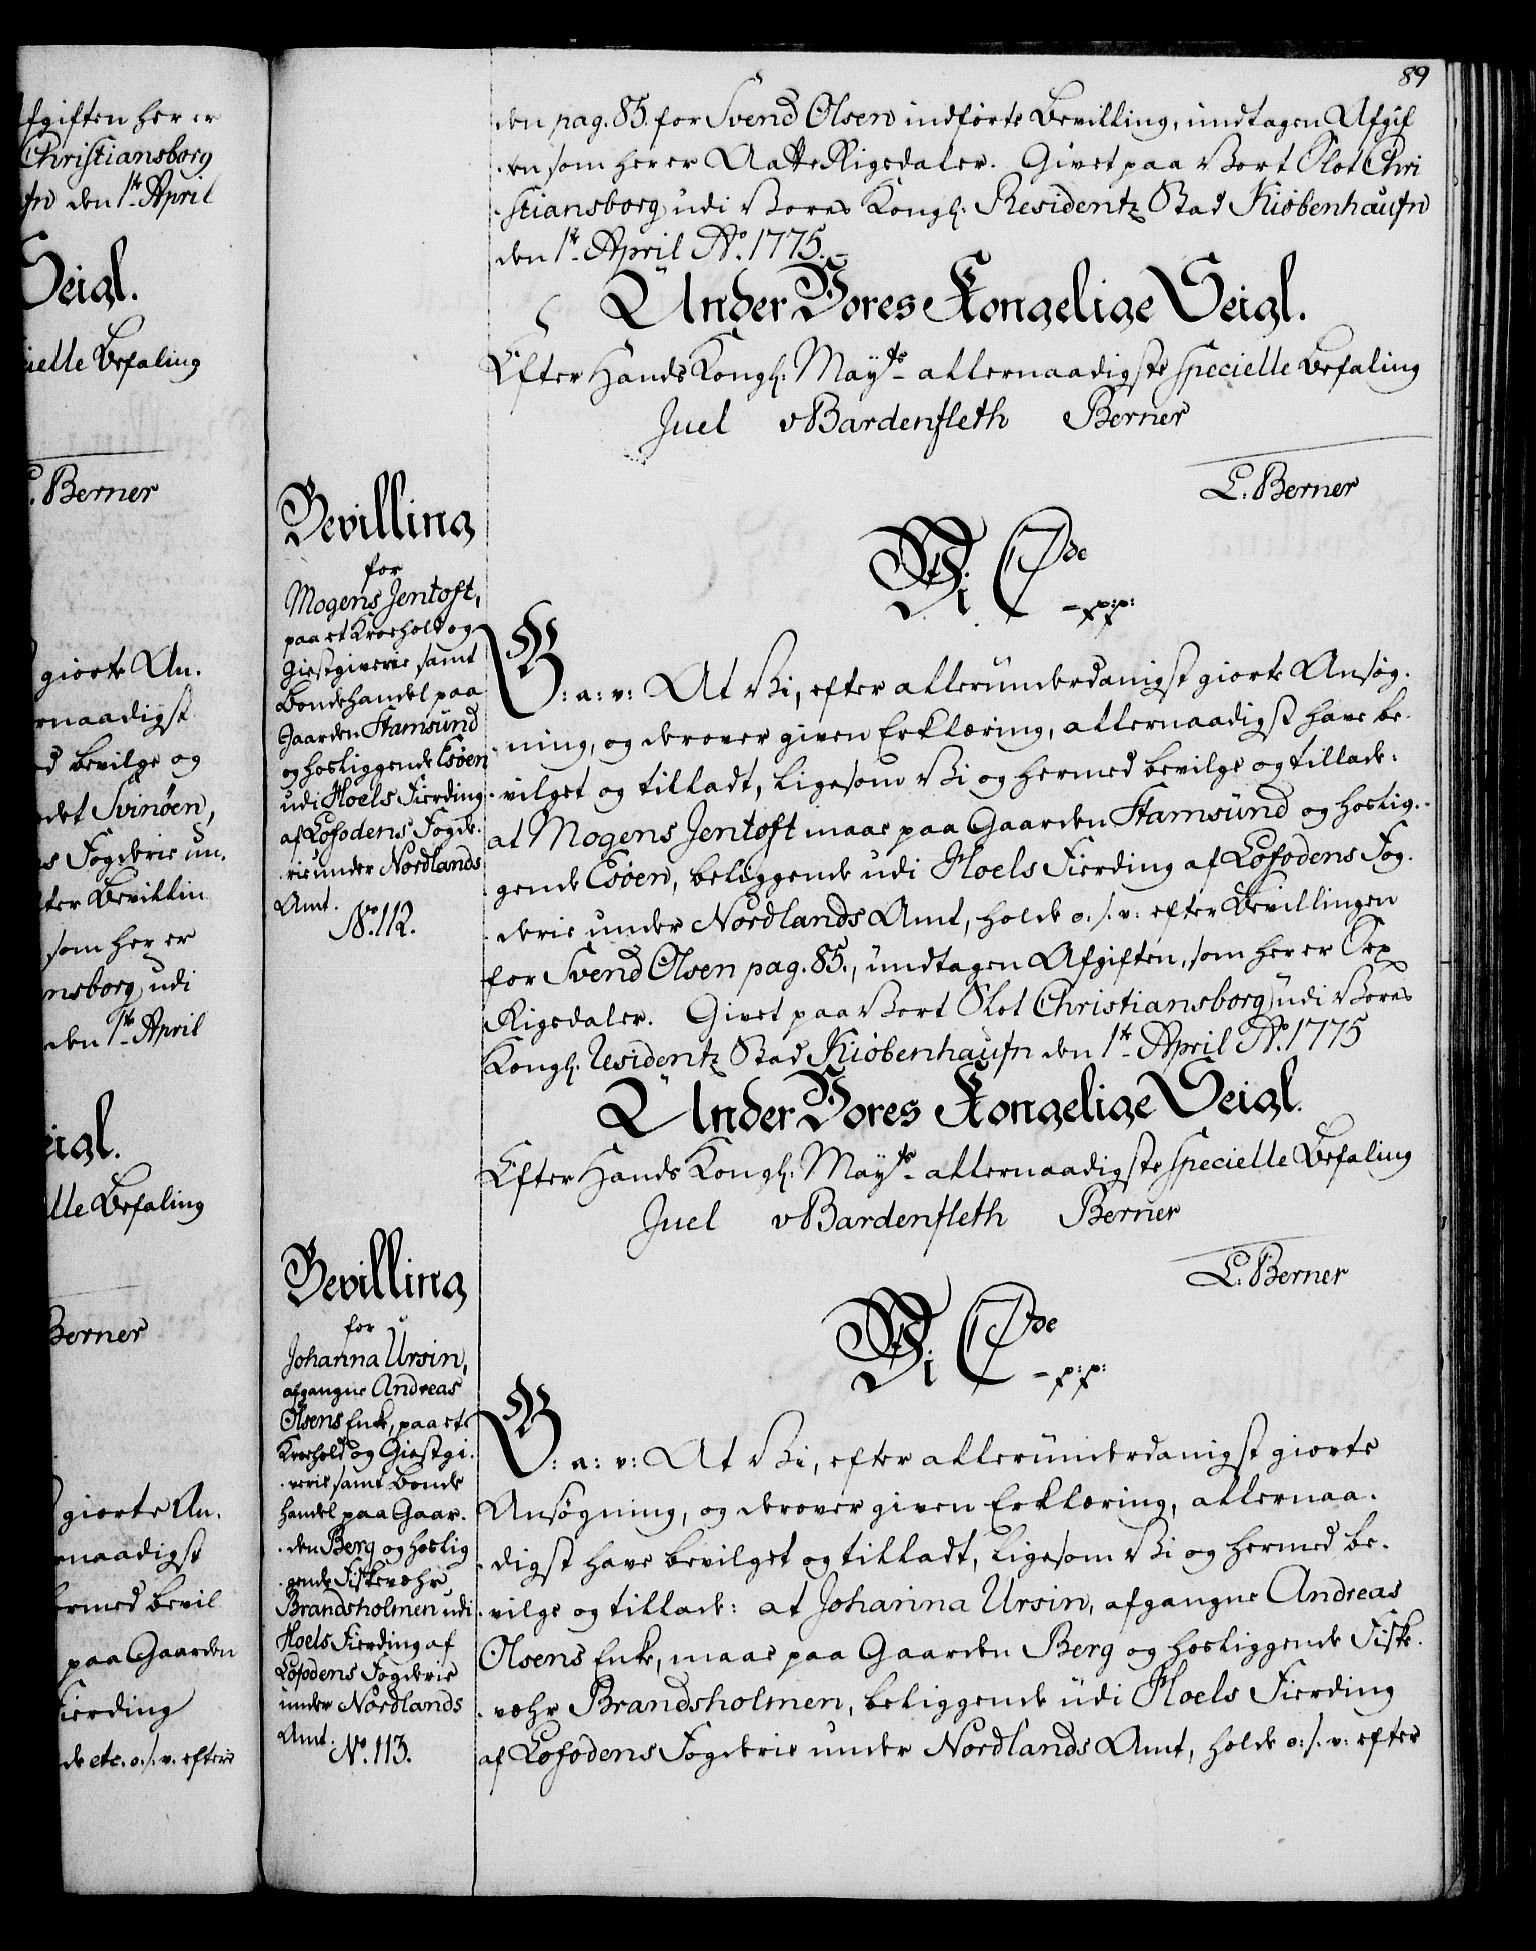 fgiften her er
Christiansborg
fn den 1te April
Seigl.
ielle Befaling
. Berner
giorte An-
rnaadigst
d bevilge og
det Svinöen,
s Fogderie un-
ter Bevillin
som her er
nsborg udi
den 1te April
eigl.
lle Befaling
Berner
giorte An-
rnaadigst
ermed bevil
paa Gaarden
Fierding
de etc. o. s. v. efter
89
den pag. 85. for Svend Olsen indförte Bevilling, undtagen Afgif
-en som her er Aatte Rigsdaler. Givet paa Vort Slot Chri
-stiansborg udi Vores Kongl: Residentz Stad Kiöbenhaufn
den 1te April Ao. 1775.
Under Vores Kongelige Seigl.
Efter Hands Kongl: Mayts allernaadigste specielle Befaling
Juel vBardenfleth Berner
L. Berner
Bevilling
for
Mogens Jentoft,
paa et Kroehold og
Giestgiverie, samt
Bondehandel paa
Gaarden Stamsund
og hosliggende Esöen
udi Hoels Fierding
af Lofodens Fogde-
-rie under Nordlands
Amt.
No. 112.
Vi C 7de
- p:p:
G: a: v: At Vi, efter allerunderdanigst giorte Ansög-
-ning, og derover given Erklæring, allernaadigst have be-
-vilget og tilladt, ligesom Vi og hermed bevilge og tillade:
at Mogens Jentoft maae paa Gaarden Stamsund og hoslig-
gende Esöen, beliggende udi Hoels Fierding af Lofodens Fog-
-derie under Nordlands Amt, holde o. s. v: efter Bevillingen
for Svend Olsen pag. 85., undtagen Afgiften, som her er Sex
Rigsdaler. Givet paa Vort Slot Christiansborg udi Vores
Kongl: Residentz Stad Kiöbenhaufn den 1te April Ao. 1775
Under Vores Kongelige Seigl.
Efter Hands Kongl: Mayts allernaadigste specielle Befaling
Juel vBardenfleth Berner
L. Berner
Bevilling
for
Johanna Ursin,
afgangne Andreas
Olsens Enke, paa et
Kroehold og Giestgi-
-verie samt Bonde
handel paa Gaar-
-den Berg og hoslig
-gende Fiskevæhr
Brandsholmen udi
Hoels Fierding af
Lofodens Fogderie
under Nordlands
Amt.
No. 113.
Vi C 7de
- p:p:
G: a: v: At Vi, efter allerunderdanigst giorte
Ansögning, og derover given Erklæring, allernaa-
-digst have bevilget og tilladt, ligesom Vi og hermed be-
-vilge og tillade: at Johanna Ursin, afgangne Andreas
Olsens Enke, maae paa Gaarden Berg og hosliggende Fiske-
-væhr Brandsholmen, beliggende udi Hoels Fierding
af Lofodens Fogderie under Nordlands Amt, holde o: s. v: efter